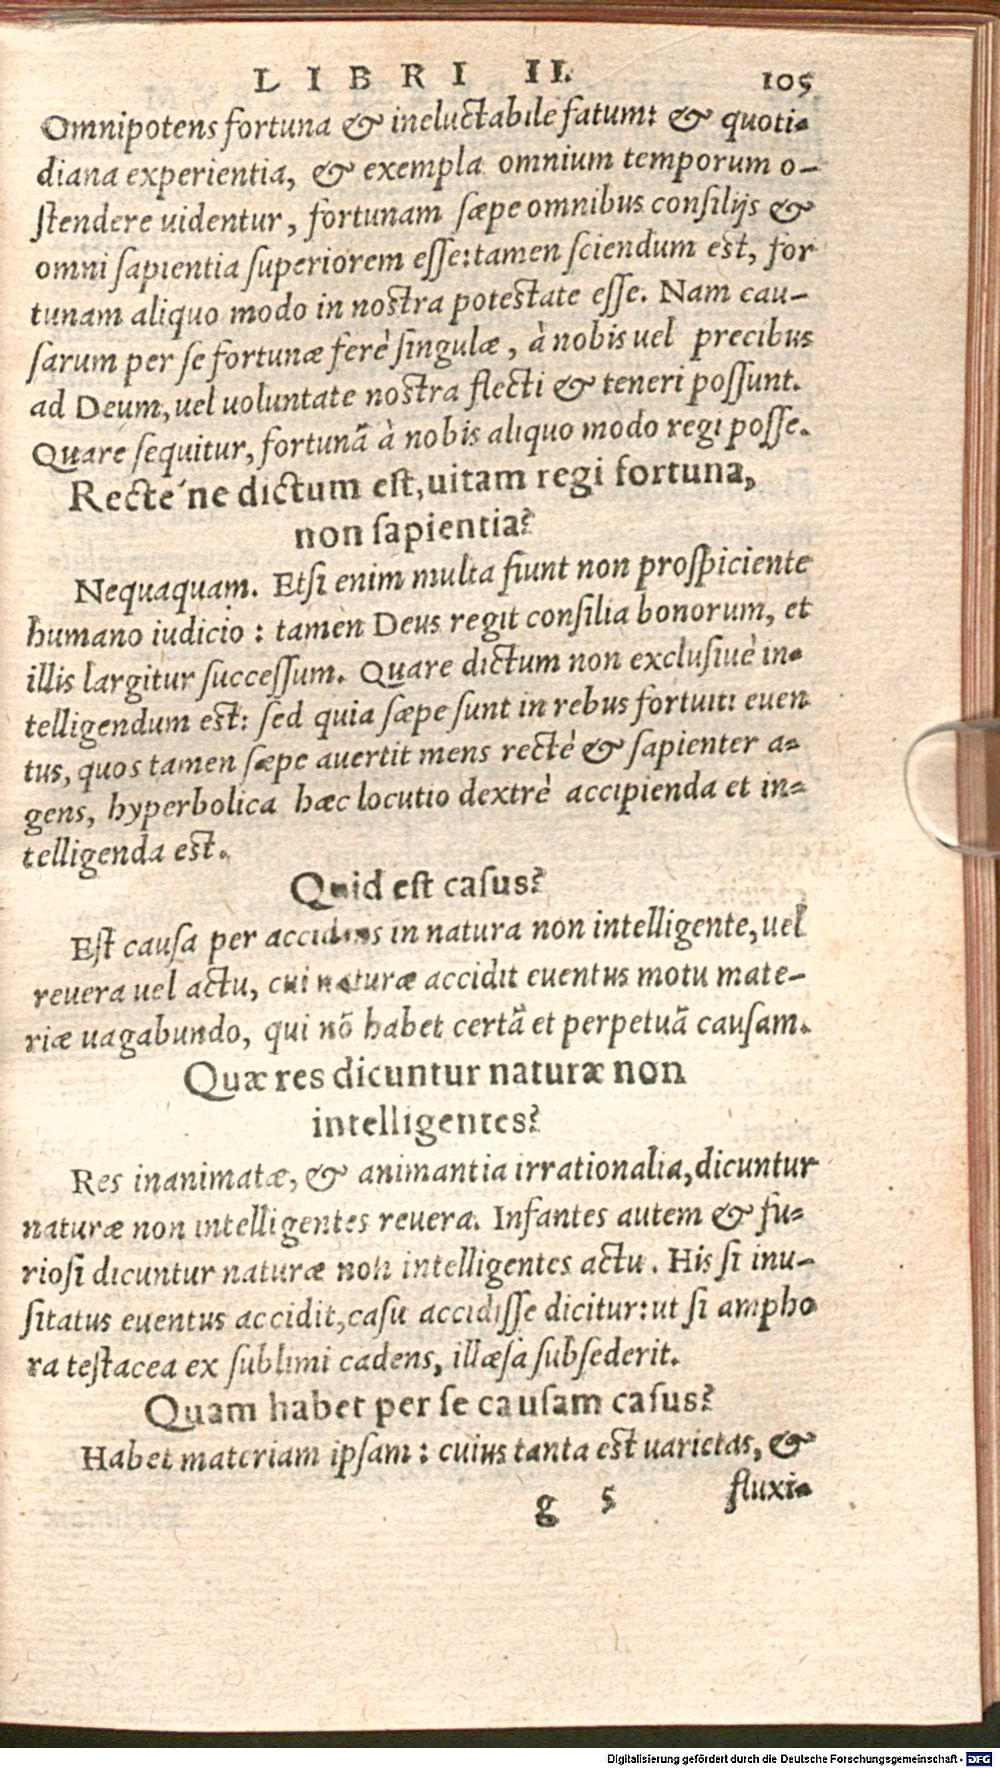 LIBRI II. 105
Omnipotens fortuna & ineluctabile fatum: & quoti-
diana experientia, & exempla omnium temporum o-
ſtendere uidentur, fortunam ſæpe omnibus conſilijs &
omni ſapientia ſuperiorem eſſe: tamen ſciendum eſt, for
tunam aliquo modo in noſtra poteſtate eſſe. Nam cau-
ſarum per ſe fortunæ ferè ſingulæ, à nobis uel precibus
ad Deum, uel uoluntate noſtra flecti & teneri poſſunt.
Quare ſequitur, fortunã à nobis aliquo modo regi poſſe.
Recte´ne dictum eſt, uitam regi fortuna,
non ſapientia?
Nequaquam. Etſi enim multa fiunt non proſpiciente
humano iudicio: tamen Deus regit conſilia bonorum, et
illis largitur ſucceſſum. Quare dictum non excluſiuè in-
telligendum eſt: ſed quia ſæpe ſunt in rebus fortuiti euen
tus, quos tamen ſæpe auertit mens rectè & ſapienter a-
gens, hyperbolica hæc locutio dextrè accipienda et in-
telligenda eſt.
Quid eſt caſus?
Eſt cauſa per accidens in natura non intelligente, uel
reuera uel actu, cui naturæ accidit euentus motu mate-
riæ uagabundo, qui nõ habet certã et perpetuã cauſam.
Quæ res dicuntur naturæ non
intelligentes?
Res inanimatæ, & animantia irrationalia, dicuntur
naturæ non intelligentes reuera. Infantes autem & fu-
rioſi dicuntur naturæ non intelligentes actu. His ſi inu-
ſitatus euentus accidit, caſu accidiſſe dicitur: ut ſi ampho
ra teſtacea ex ſublimi cadens, illæſa ſubſederit.
Quam habet per ſe cauſam caſus?
Habet materiam ipſam: cuius tanta eſt uarietas, &
g 5 fluxi-
Digitalisierung gefördert durch die Deutsche Forschungsgemeinschaft - DFG